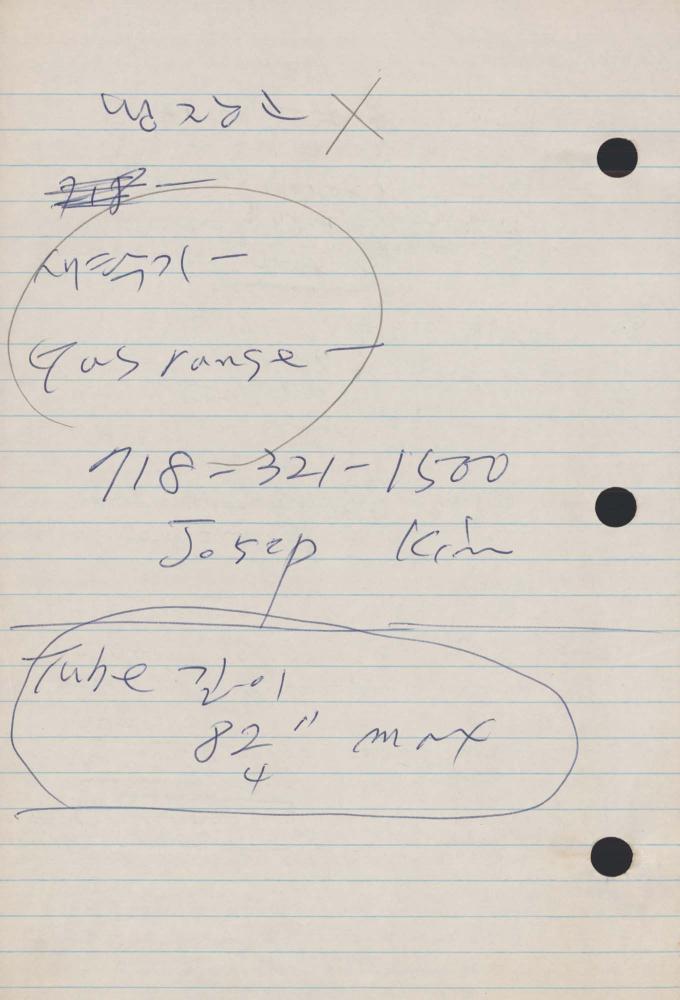 냉장고 X
718 —
세탁기 —
Gas range —
718-321-1500
Josep Kim
Tube 길이
82" max
4